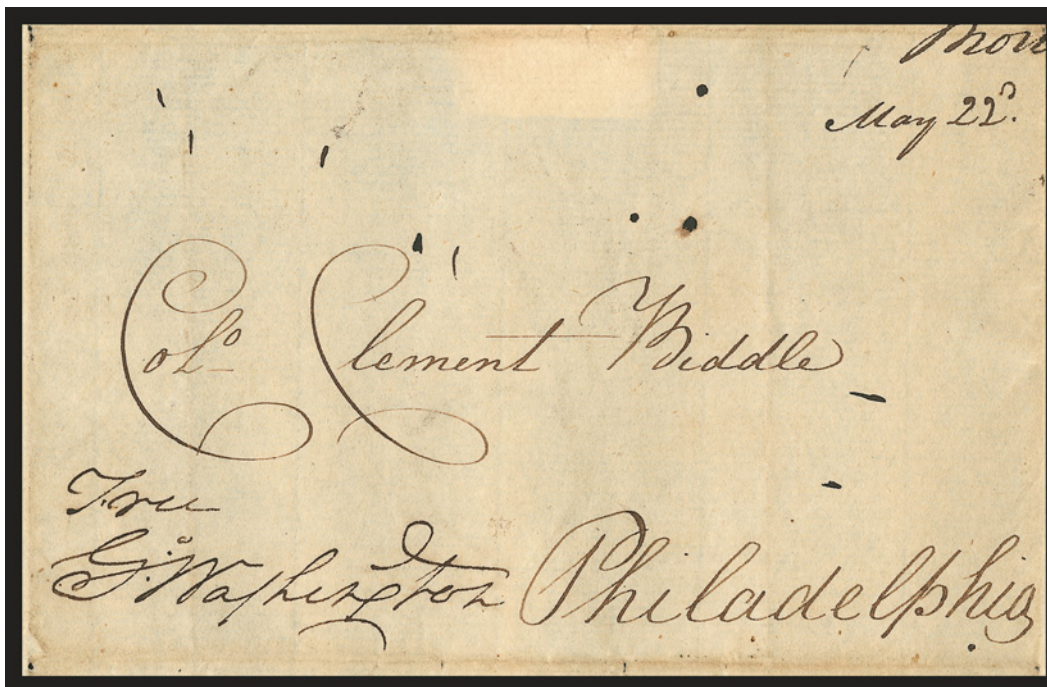 May 22ᵈ.
Colᵒ Clement Biddle
Free
Gᵒ: Washington
Philadelphia